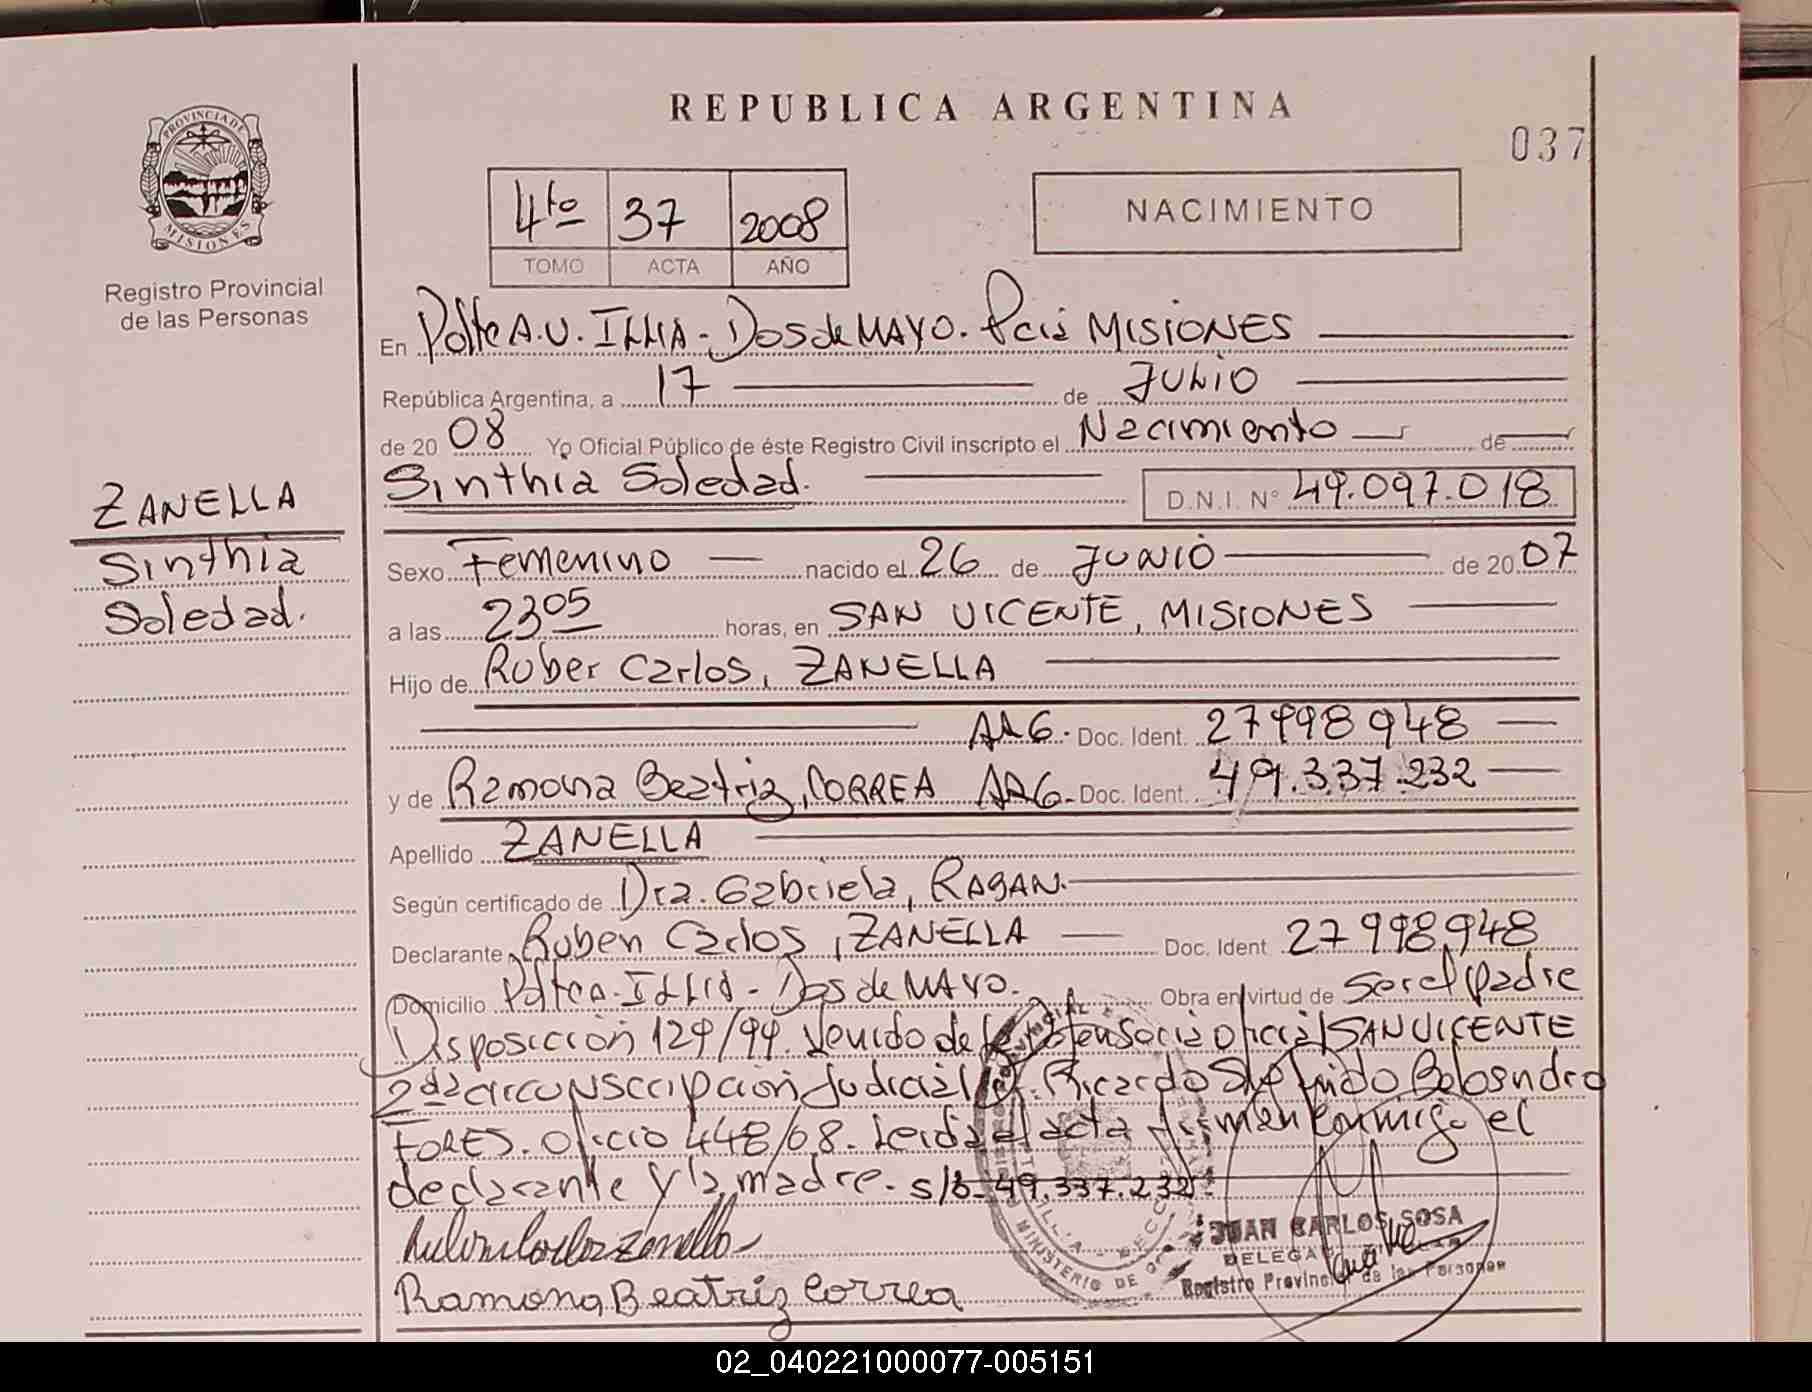 REPUBLICA ARGENTINA
037
PROVINCIA DE MISIONES
Registro Provincial
de las Personas
4to 37 2008
TOMO ACTA AÑO
NACIMIENTO
En Pdte A.U. ILLIA - Dos de MAYO. Pcia MISIONES
República Argentina, a 17 de JULIO
de 20 08 Yo Oficial Público de éste Registro Civil inscripto el Nacimiento de
Sinthia Soledad. D.N.I. N° 49.097.018
ZANELLA
Sinthia
Soledad.
Sexo Femenino nacido el 26 de JUNIO de 20 07
a las 23 05 horas, en SAN VICENTE, MISIONES
Hijo de Ruber Carlos, ZANELLA
ARG. Doc. Ident. 27998948
y de Ramona Beatriz, CORREA ARG. Doc. Ident. 49.337.232
Apellido ZANELLA
Según certificado de Dra. Gabriela, RAGAN.
Declarante Ruben Carlos, ZANELLA Doc. Ident 27998948
Domicilio Pdte A. ILLIA - Dos de MAYO. Obra en virtud de Ser el padre
Disposicion 129/94. Venido de la Defensoria oficial SAN VICENTE
2da circunscripcion Judicial Ricardo Belosndro
FORES. Oficio 448/08. Leida el acta firman conmigo el
declarante y la madre. s/b 49.337.232.
Ruben Carlos Zanella
Ramona Beatriz Correa
JUAN CARLOS SOSA
DELEGADO TITULAR
Registro Provincial de las Personas
02_040221000077-005151